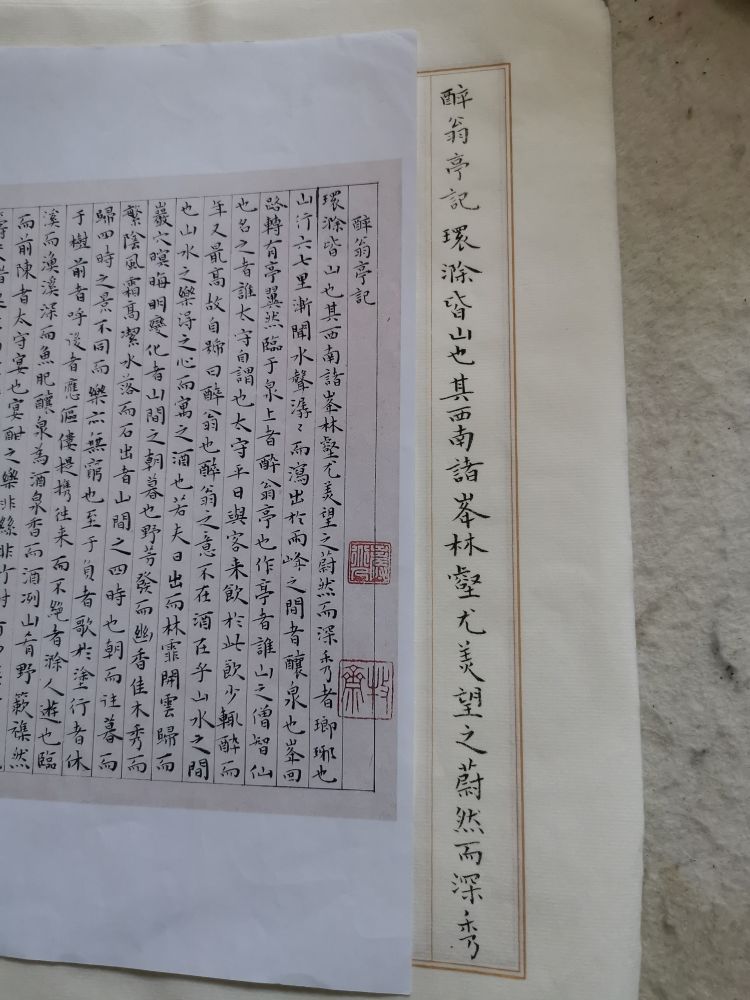 醉翁亭記環滁皆山也其西南諸峯林壑尤美望之蔚然而深秀
醉翁亭記
環滁皆山也其西南諸峯林壑尤美望之蔚然而深秀者瑯琊也
山行六七里漸聞水聲潺〻而瀉出於兩峰之間者釀泉也峯回
路轉有亭翼然臨于泉上者醉翁亭也作亭者誰山之僧智仙
也名之者誰太守自謂也太守平日與客来飲於此飲少輒醉而
年又最高故自號曰醉翁也醉翁之意不在酒在乎山水之間
也山水之樂得之心而寓之酒也若夫日出而林霏開雲歸而
巖穴暝晦明變化者山間之朝暮也野芳發而幽香佳木秀而
繁陰風霜高潔水落而石出者山間之四時也朝而往暮而
歸四時之景不同而樂亦無窮也至于負者歌於塗行者休
于樹前者呼後者應傴僂提携往来而不絕者滁人遊也臨
溪而漁溪深而魚肥釀泉為酒泉香而酒洌山肴野蔌襍然
而前陳者太守宴也宴酣之樂非絲非竹射